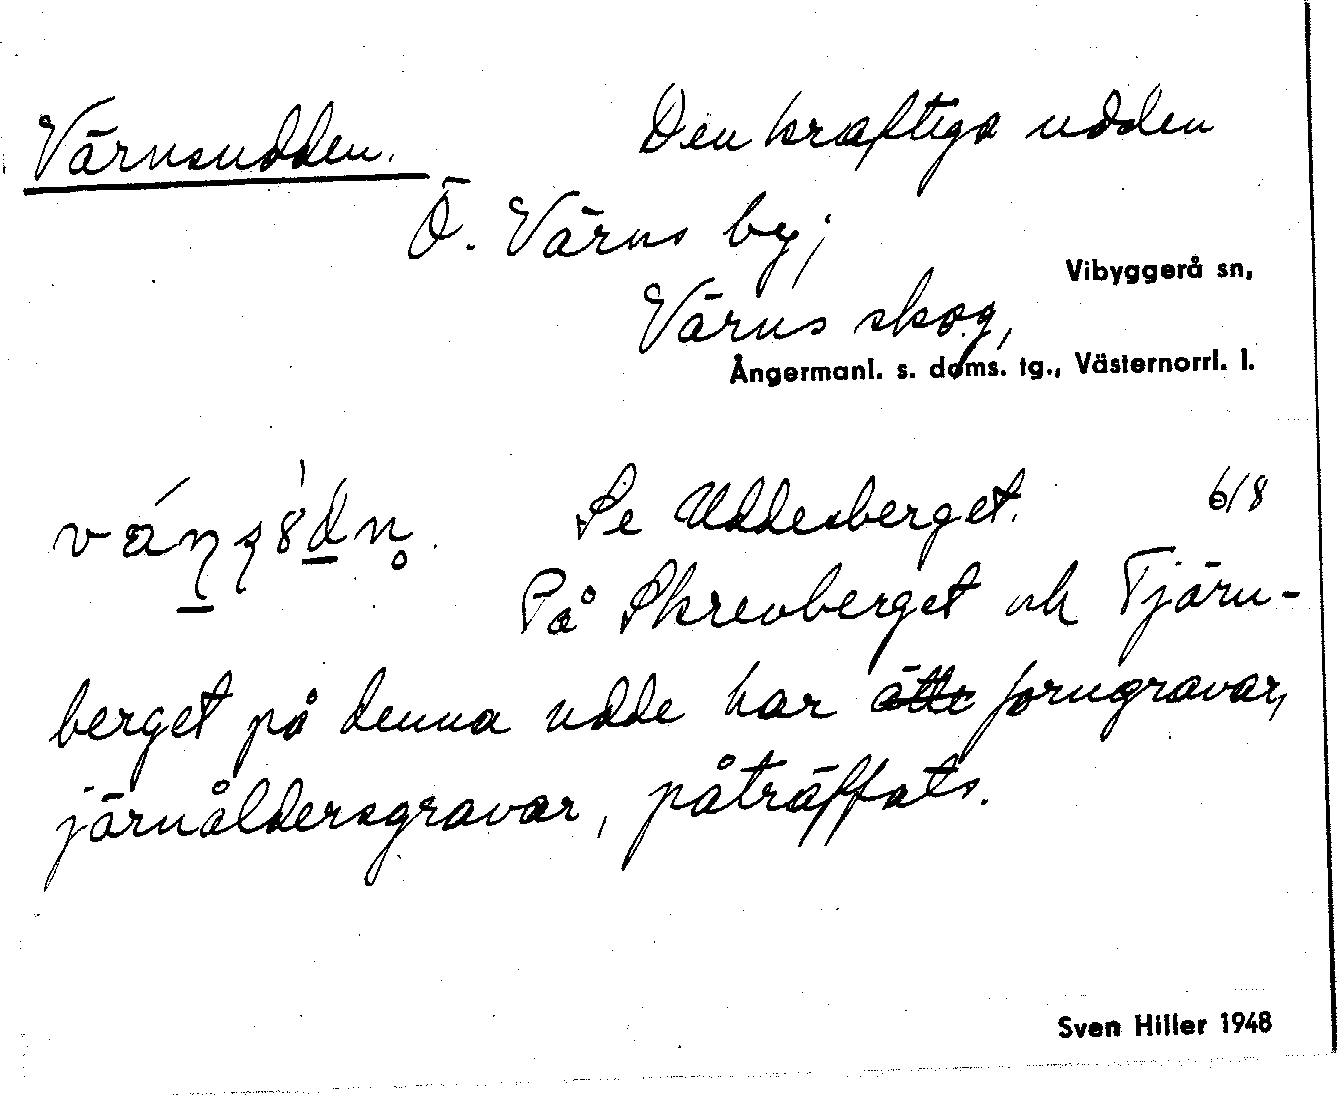 Värnsudden. Den kraftiga udden
Ö. Värns by;
Vibyggerå sn,
Värns skog,
Ångermanl. s. doms. tg., Västernorrl. l.
Se Uddesberget. 6/8
På Skrevberget och Tjärn-
berget på denna udde har ätte forngravar,
järnåldersgravar, påträffats.
Sven Hiller 1948